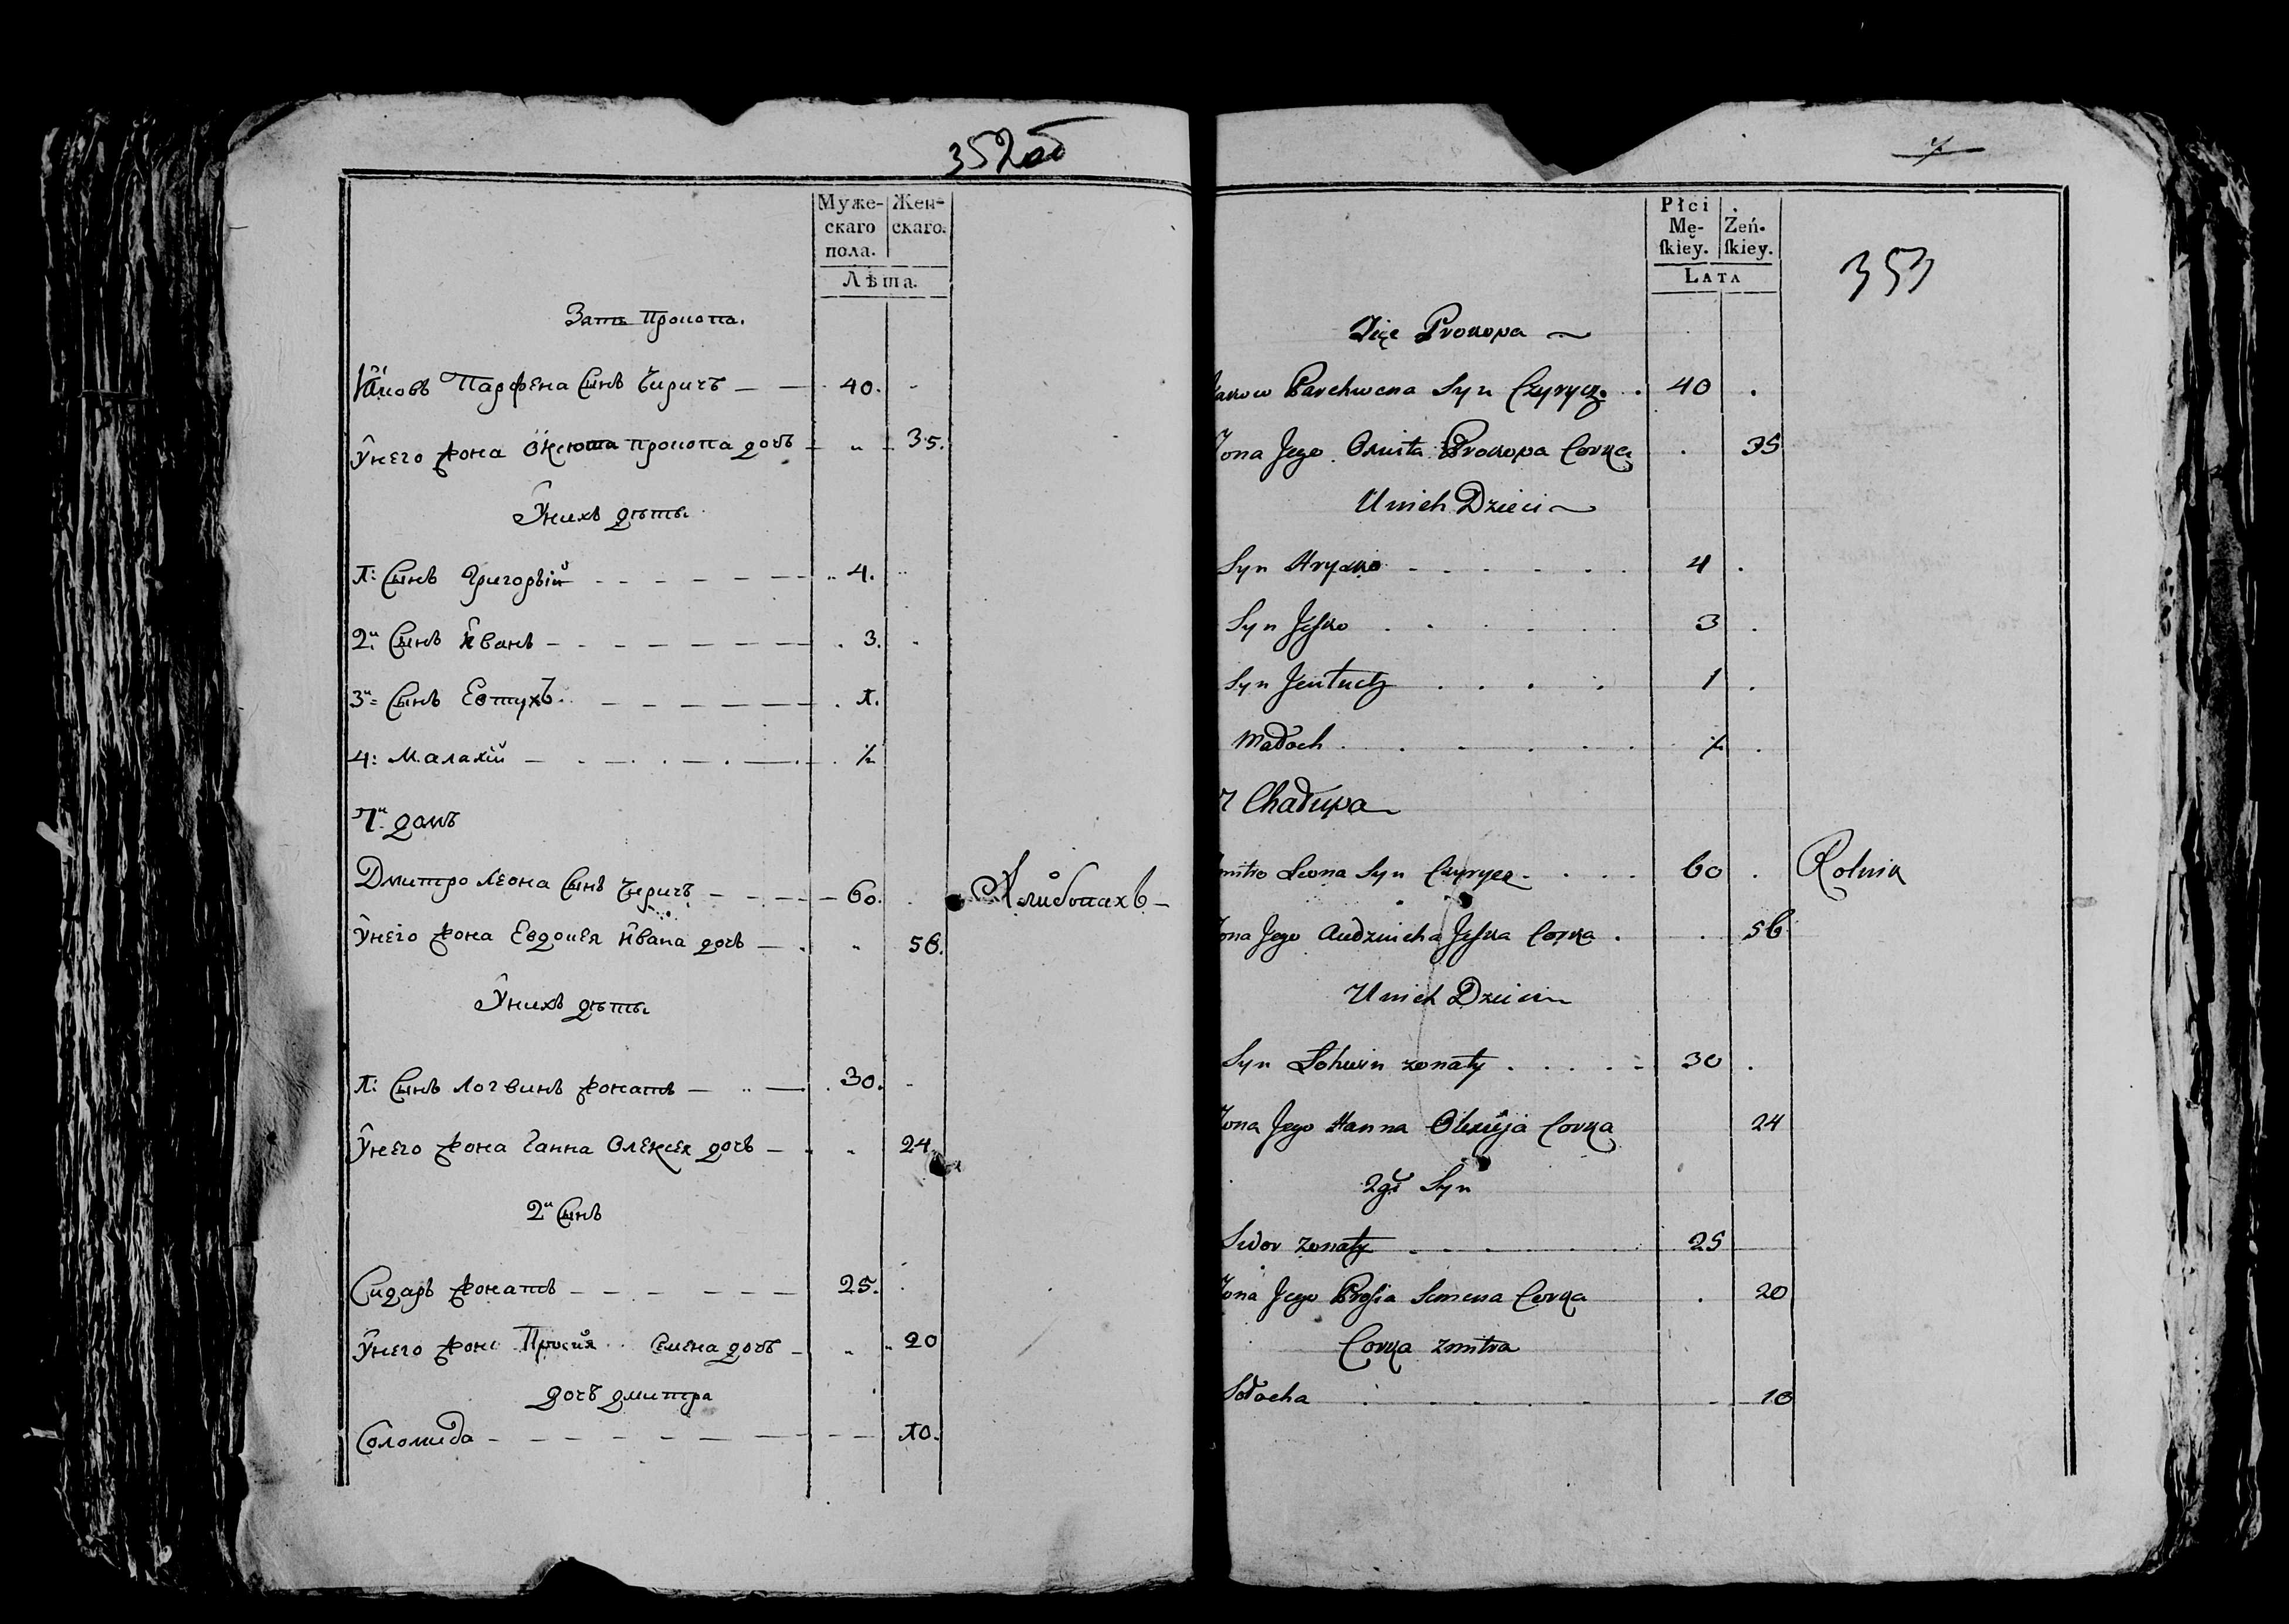 352об
Муже-
скаго
пола.
Жен-
скаго.
Лѣта.
Зать Прокопа.
Яковъ Парфена Сынъ Чиричъ 40.
Унего жона Оксюта прокопа дочъ 35.
Унихъ дѣты
1: Сынъ Григорѣй 4.
2й Сынъ Иванъ 3.
3й Сынъ Евтухъ 1.
4: Малахій ½
7й домъ
Дмитро Леона Сынъ Чиричъ 60. Хлибопахъ
Унего жона Евдокея Ивана дочъ 56.
Унихъ дѣты
1: Сынъ Логвинъ жонатъ 30.
Унего жона Ганна Олексея дочъ 24.
2й Сынъ
Сидаръ жонатъ 25.
Унего жона Просия Семена дочъ 20
дочъ дмитра
Соломида 10.
353
Płci
Mę-
ſkiey.
Żeń-
ſkiey.
LATA
Zięc Prokopa
Jakow Parchwena Syn Czyrycz 40
Zona Jego Oxiuta Prokopa Corka 35
U nich Dzieci
Syn Hryćko 4
Syn Jeſko 3
Syn Jeutuch 1
Małoch ½
7 Chałupa
Zmitro Leona Syn Czyrycz 60 Rolnik
Zona Jego Audzincha Jeſka Corka 56
U nich Dzieci
Syn Łohwin zonaty 30
Zona Jego Hanna Olexieja Corka 24
2gi Syn
Sidor zonaty 25
Zona Jego Proſia Semena Corka 20
Corka Zmitra
Sołocha 10